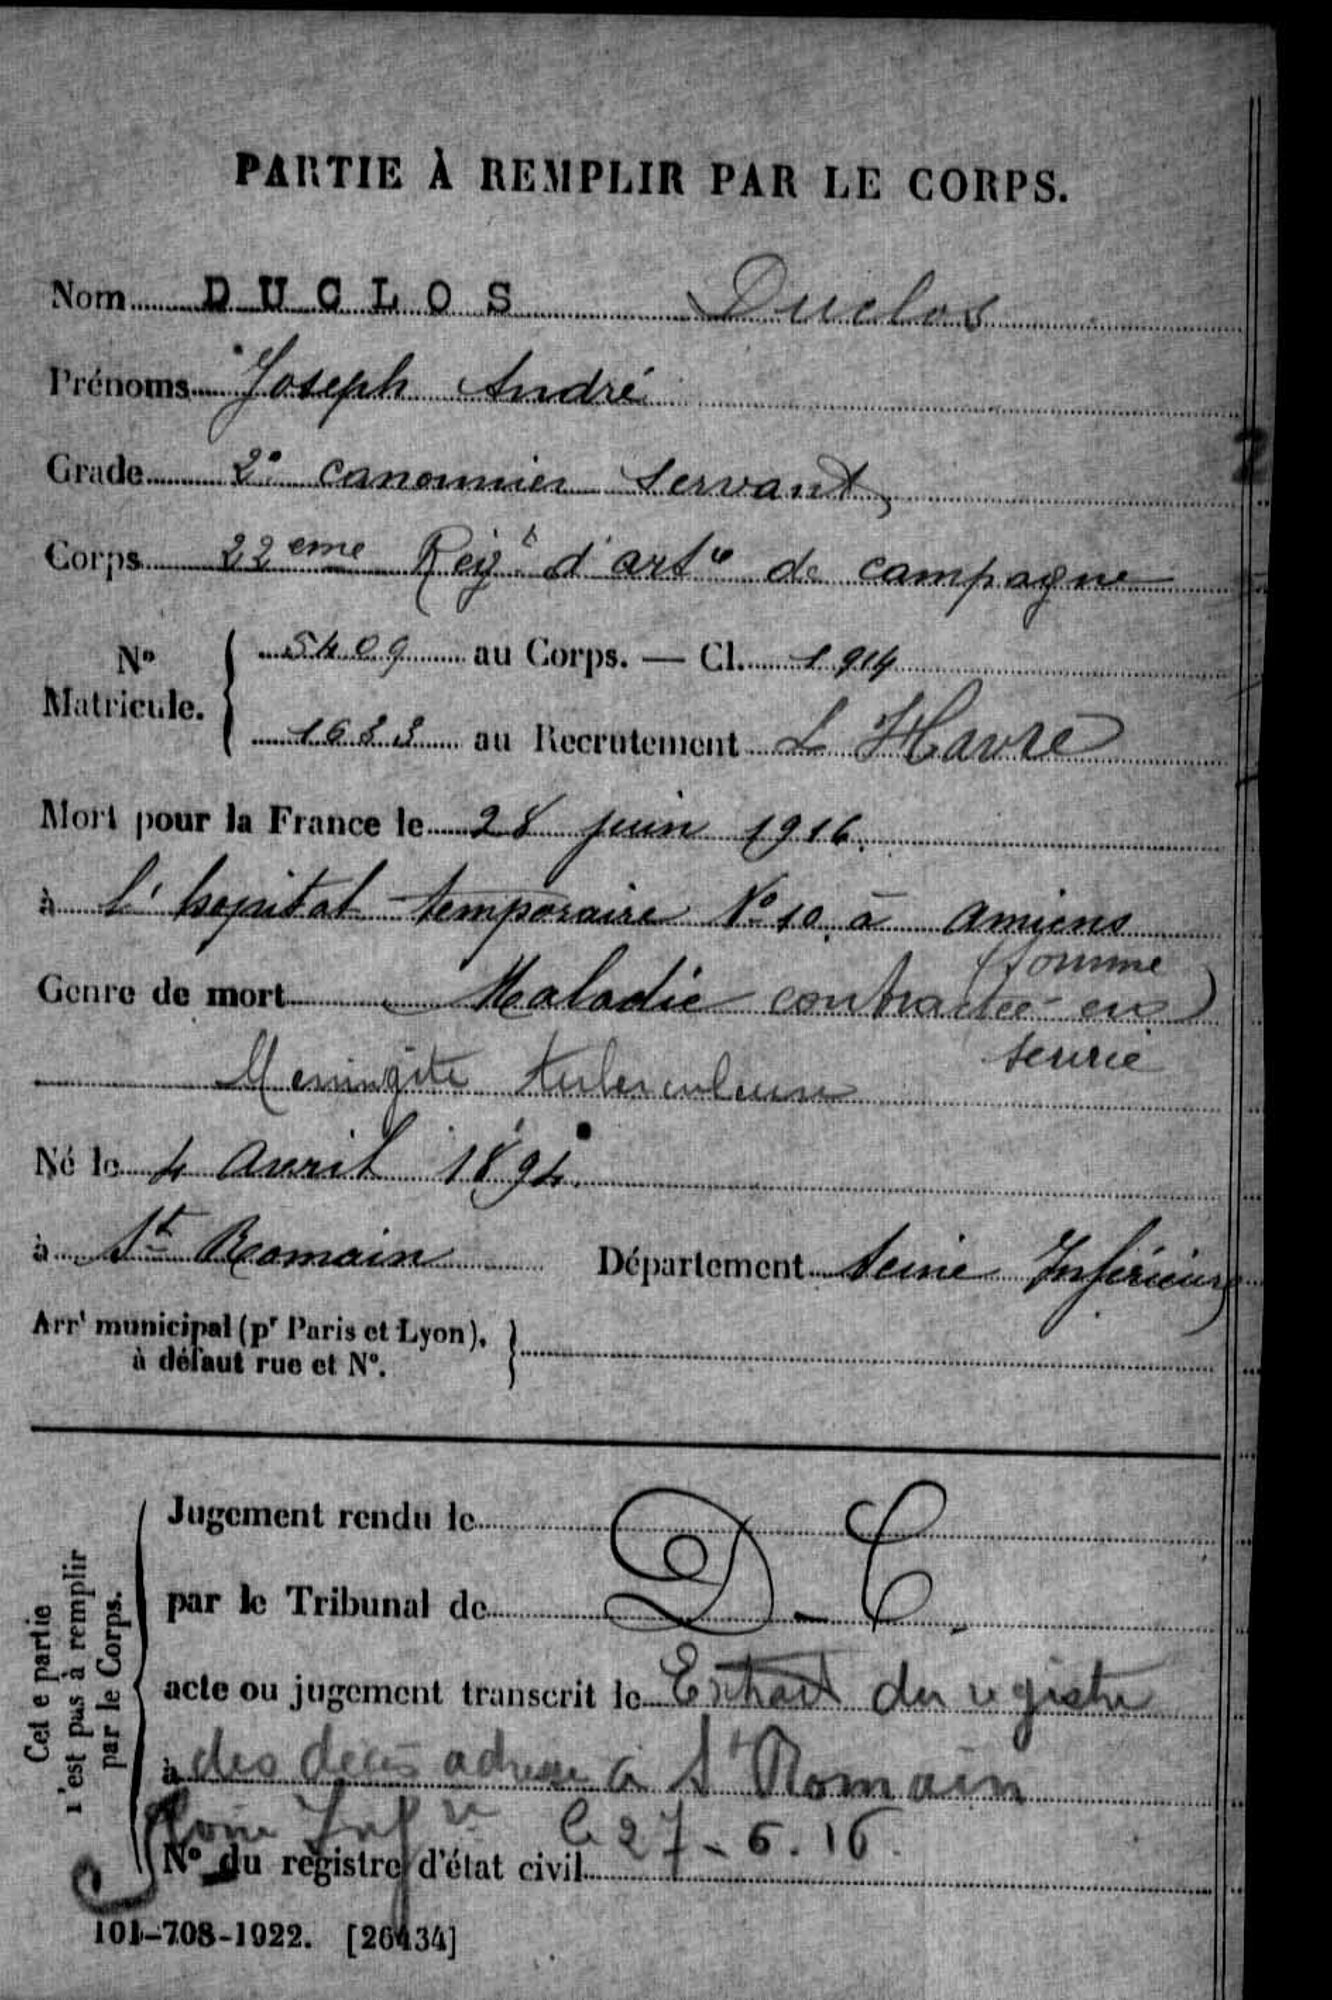 PARTIE À REMPLIR PAR LE CORPS.
Nom DUCLOS Duclos
Prénoms Joseph André
Grade 2e canonnier servant
Corps 22eme Regt d'artie de campagne
No Matricule. 5409 au Corps. — Cl. 1914
1633 au Recrutement L Havre
Mort pour la France le 28 juin 1916.
à l'hopital temporaire No 10 à Amiens
(Somme)
Genre de mort Maladie contractée en
service
Meningite tuberculeuse
Né le 4 Avril 1894.
à St Romain Département Seine Inférieure
Arrt municipal (pr Paris et Lyon),
à défaut rue et No.
Cet e partie
n'est pas à remplir
par le Corps.
Jugement rendu le
par le Tribunal de D. C.
acte ou jugement transcrit le Extrait du registre
à des décès adressé à St Romain
Infre le 27-6.16.
No du registre d'état civil
101-708-1922. [26434]